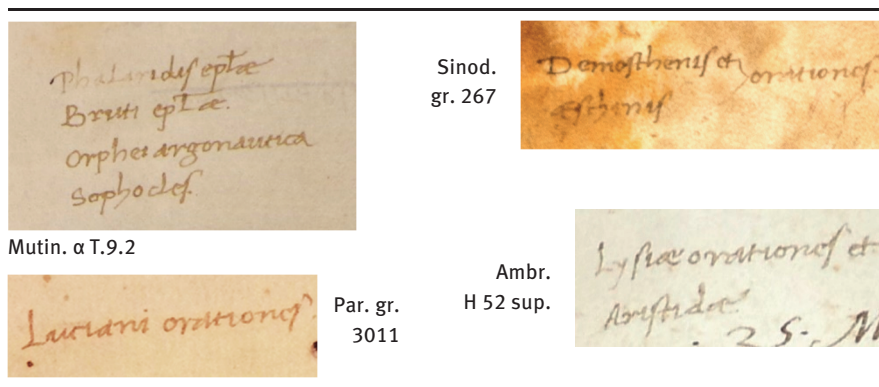 Phalaridis eptæ
Bruti eptæ.
Orphei argonautica
Sophocles.
Mutin. α T.9.2
Luciani orationes
Par. gr.
3011
Sinod.
gr. 267
Demosthenis et
orationes.
Æschinis
Ambr.
H 52 sup.
Lysiæ orationes et
Aristidæ
. 25. M